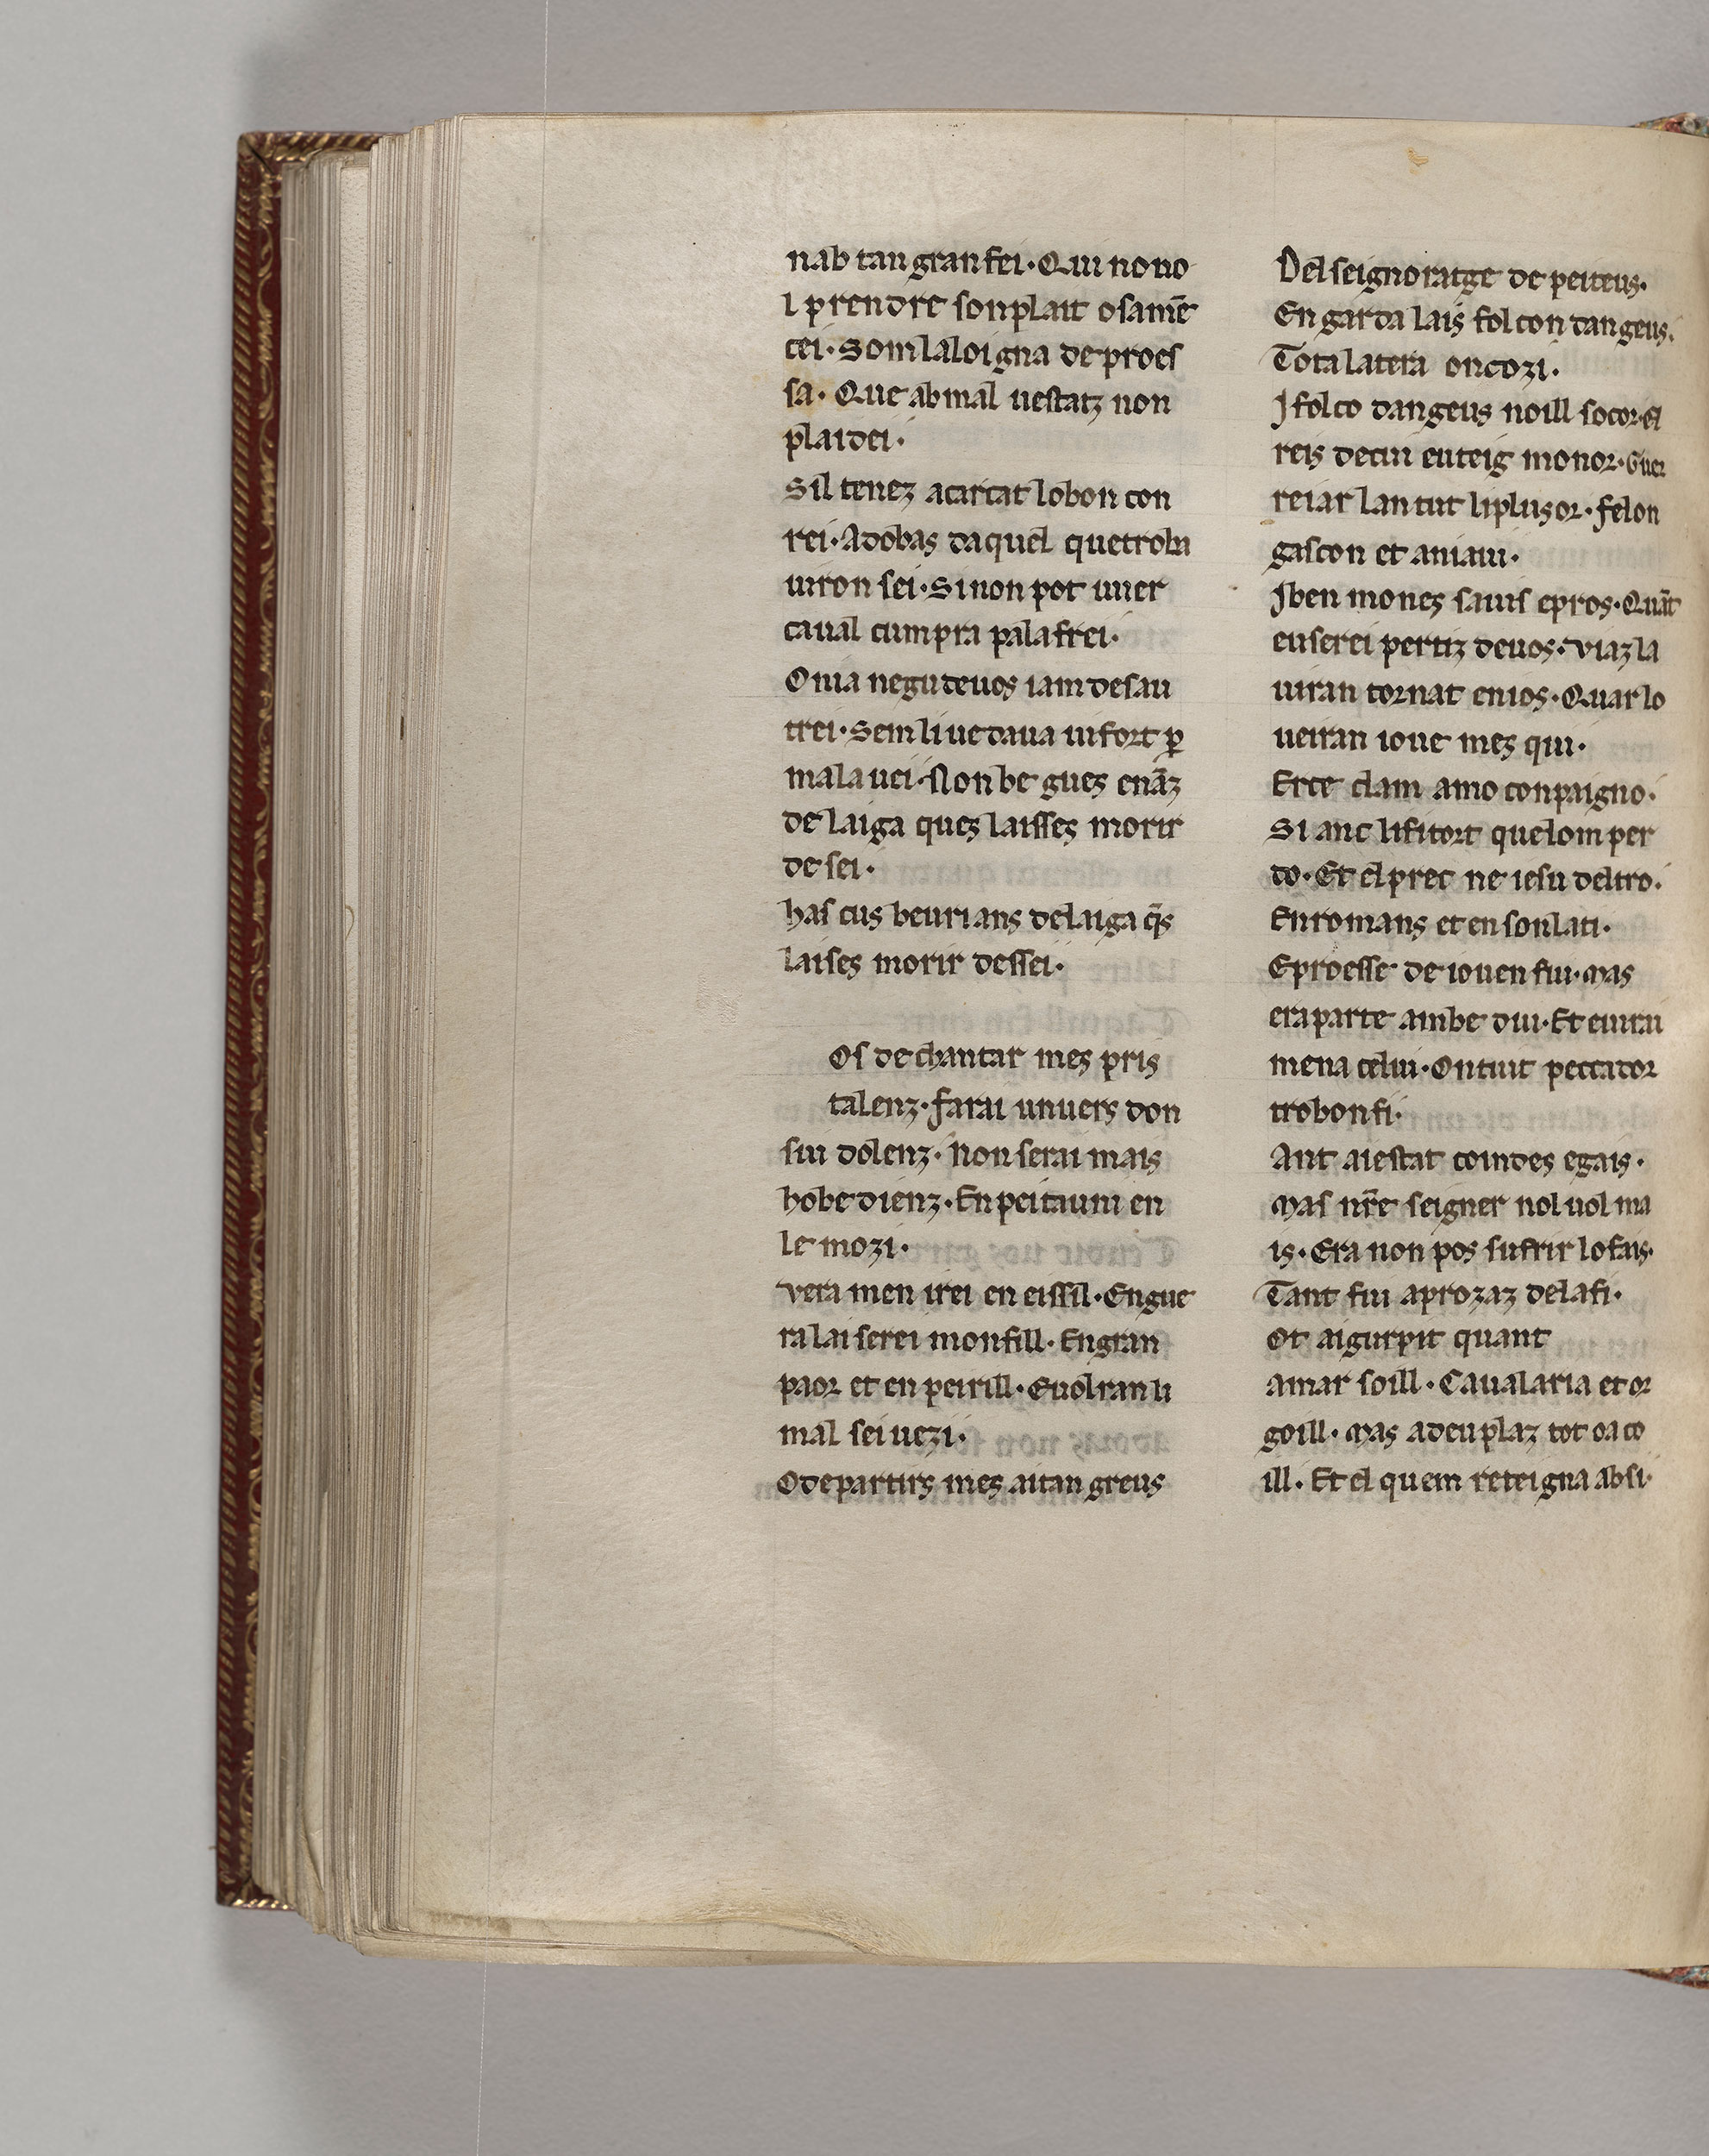 nab tan gran fei · Qui no uo
l prendre son plait o sa mē
cei · Som laloigna de proes
sa · Que ab mal uestatz non
plaidei ·
Sil tenez acartat lo bon con
rei · Adobas da quel que troba
uiron sei · Si non pot uuer
caual cumpra palafrei ·
O nia negu de uos iam desau
trei · Sem li uedaua ui fort ꝑ
malauei · Non be gues enāz
de laiga ques laisses morir
de sei ·
has cus beuri ans de laiga q̄s
laises morir dessei ·
Os de chantar mes pris
talenz · Farai un uers don
sui dolenz · Non serai mais
hobedienz · En peitaum en
le mozi ·
vera men irei en eissil · En gue
ra laiserei mon fill · En gran
paor et en peirill · E uolran li
mal sei uezi ·
O departirs mes aitan greus
Del seignoratge de peiteus ·
En garda lais folcon dangeus ·
Tota la terra on cozi ·
I folco dangeus noill socor · El
reis decui eu teig monor · Guer
reiar lan tut li plusor · felon
gascon et aniaui ·
I ben mones sauis epros · Quāt
eu serei partiz deuos · viaz la
uiran tornat enios · Quar lo
ueiran ioue mes qui ·
Erce clam a mo conpaigno ·
Si anc li fi tort quelom per
do · Et el prec ne iesu deltro ·
En romans et en son lati ·
E proesse de iouen fui · Mas
era parte ambe dui · Et eu irai
mena celui · On tuit peccador
trobon fi ·
Ant ai estat coindes egais ·
Mas nr̄e seigner nol uol ma
is · Era non pos sufrir lo fais ·
Tant fui aprozaz de la fi ·
Ot ai gurpit quant
amar soill · Caualaria et or
goill · Mas a deu plaz tot oa co
ill · Et el quem reteigna ab si ·